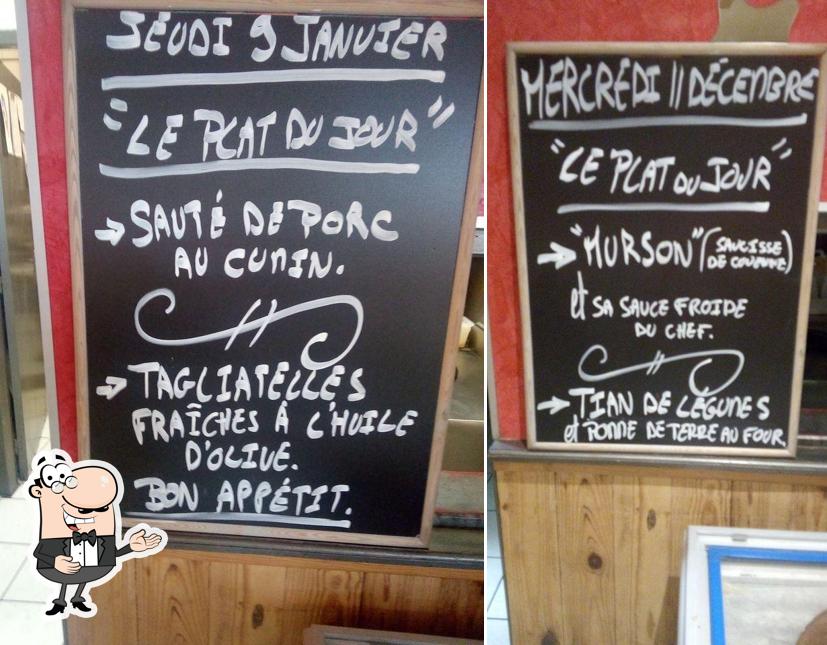 JEUDI 9 JANVIER
"LE PLAT DU JOUR"
→ SAUTÉ DE PORC
AU CUMIN.
→ TAGLIATELLES
FRAÎCHES À L'HUILE
D'OLIVE.
BON APPÉTIT.
MERCREDI 11 DÉCEMBRE
"LE PLAT DU JOUR"
→ "MURSON" (SAUCISSE
DE COUENNE)
et SA SAUCE FROIDE
DU CHEF.
→ TIAN DE LÉGUMES
et POMME DE TERRE AU FOUR.